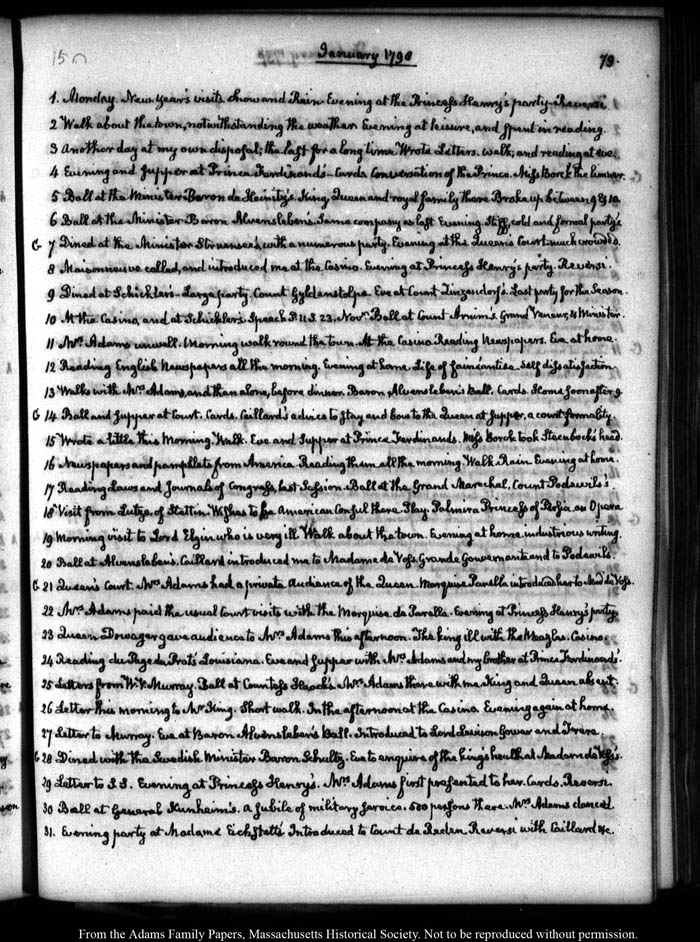 January 1798
79.
1. Monday. New Year's visits Snow and Rain Evening at the Princess Henry's party. Reversi.
2 Walk about the town, notwithstanding the weather Evening at leisure, and spent in reading.
3 Another day at my own disposal; the last for a long time. Wrote Letters. walk, and reading at eve.
4 Evening and supper at Prince Ferdinand's. Cards Conversation of the Prince. Miss Bork the limner.
5 Ball at the Minister Baron de Heinitz's. King, Queen and royal family there Broke up between 9 & 10.
6 Ball at the Minister Baron Alvensleben's. Same company as last Evening Stiff, cold and formal party's
G 7 Dined at the Minister Struensee's, with a numerous party. Evening at the Queen's Court. much crowded.
8 Maisonneuve called, and introduced me at the Casino. Evening at Princess Henry's party. Reversi.
9 Dined at Schickler's. Large party. Count Gyldenstolpe. Eve at Count Zinzendorf's. Last party for the Season.
10 At the Casino, and at Schickler's. Speech P. U.S. 23. Novr. Ball at Count Arnim's. Grand Veneur, & Minister.
11 Mrs. Adams unwell. Morning walk round the town. At the Casino Reading Newspapers. Eve at home.
12 Reading English Newspapers all the morning. Evening at home. Life of faineantise. self dissatisfaction.
13 Walks with Mrs. Adams, and then alone, before dinner. Baron Alvensleben's Ball. Cards. Home soon after 9.
G 14 Ball and supper at Court. Cards. Caillard's advice to stay and bow to the Queen at supper, a court formality.
15 Wrote a little this Morning. Walk. Eve and supper at Prince Ferdinands. Miss Borck took Steenbock's head.
16 Newspapers and pamphlets from America Reading them all the morning. Walk. Rain. Evening at home.
17 Reading Laws and Journals of Congress, last Session. Ball at the Grand Marechal, Count Podewils's
18 Visit from Lutze, of Stettin. Wishes to be American Consul there. Play. Palmira Princess of Persia an Opera
19 Morning visit to Lord Elgin who is very ill. Walk about the town. Evening at home. industrious writing.
20 Ball at Alvensleben's. Caillard introduced me to Madame de Voss, Grande Gouvernante and to Podewils.
G 21 Queen's Court. Mrs. Adams had a private Audience of the Queen. Marquise Parella introduces her to Mad. de Voss.
22 Mrs. Adams paid the usual Court visits with the Marquise de Parella. Evening at Princess Henry's party.
23 Queen Dowager gave audience to Mrs. Adams this afternoon. The king ill with the Meazles. Casino.
24 Reading du Page du Prat's Louisiana. Eve and supper with Mrs. Adams and my brother at Prince Ferdinands'.
25 Letters from W. V. Murray. Ball at Countess Haack's. Mrs. Adams there with me. King and Queen absent.
26 Letter this morning to Mr. King. Short walk. In the afternoon at the Casino. Evening again at home.
27 Letter to Murray. Eve at Baron Alvensleben's Ball. Introduced to Lord Levison Gower and Frere.
G 28 Dined with the Swedish Minister Baron Schultz. Eve to enquire of the king's health at Madame de Voss's.
29 Letter to S S. Evening at Princess Henry's. Mrs. Adams first presented to her. Cards. Reversi.
30 Ball at General Kunheim's. A Jubile of military service. 500 persons there. Mrs. Adams danced.
31. Evening party at Madame Eichstatt's Introduced to Count de Reden Reversi with Caillard &c.
From the Adams Family Papers, Massachusetts Historical Society. Not to be reproduced without permission.